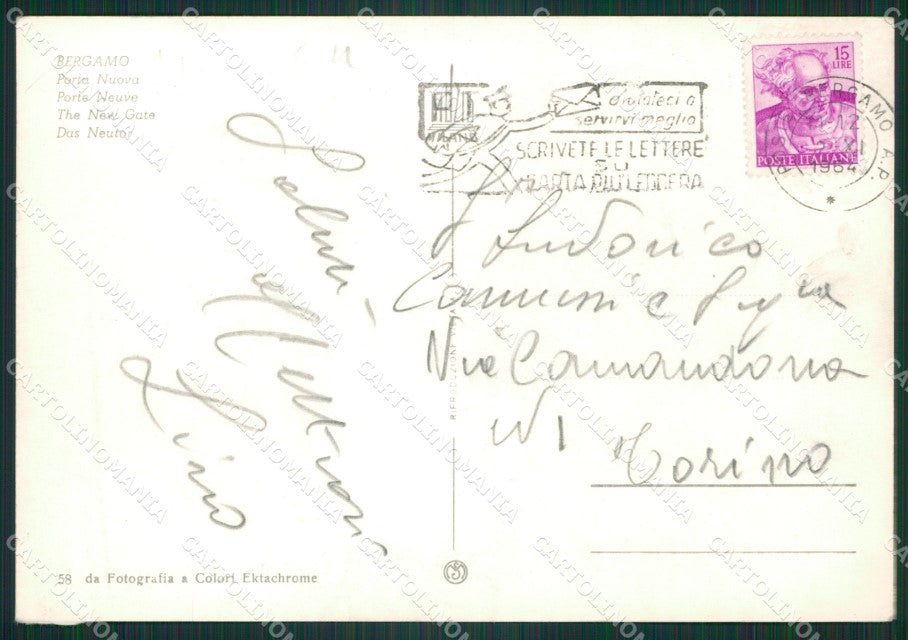 BERGAMO
Porta Nuova
Porte Neuve
The New Gate
Das Neutor
aiutateci a
servirvi meglio
SCRIVETE LE LETTERE
SU
CARTA PIÙ LEGGERA
15
LIRE
POSTE ITALIANE
BERGAMO A.P.
12
XI
1964
Saluti
Lino
Ludovico
e Sig.ra
Via Camandona
N 1
Torino
58 da Fotografia a Colori Ektachrome
CARTOLINOMANIA